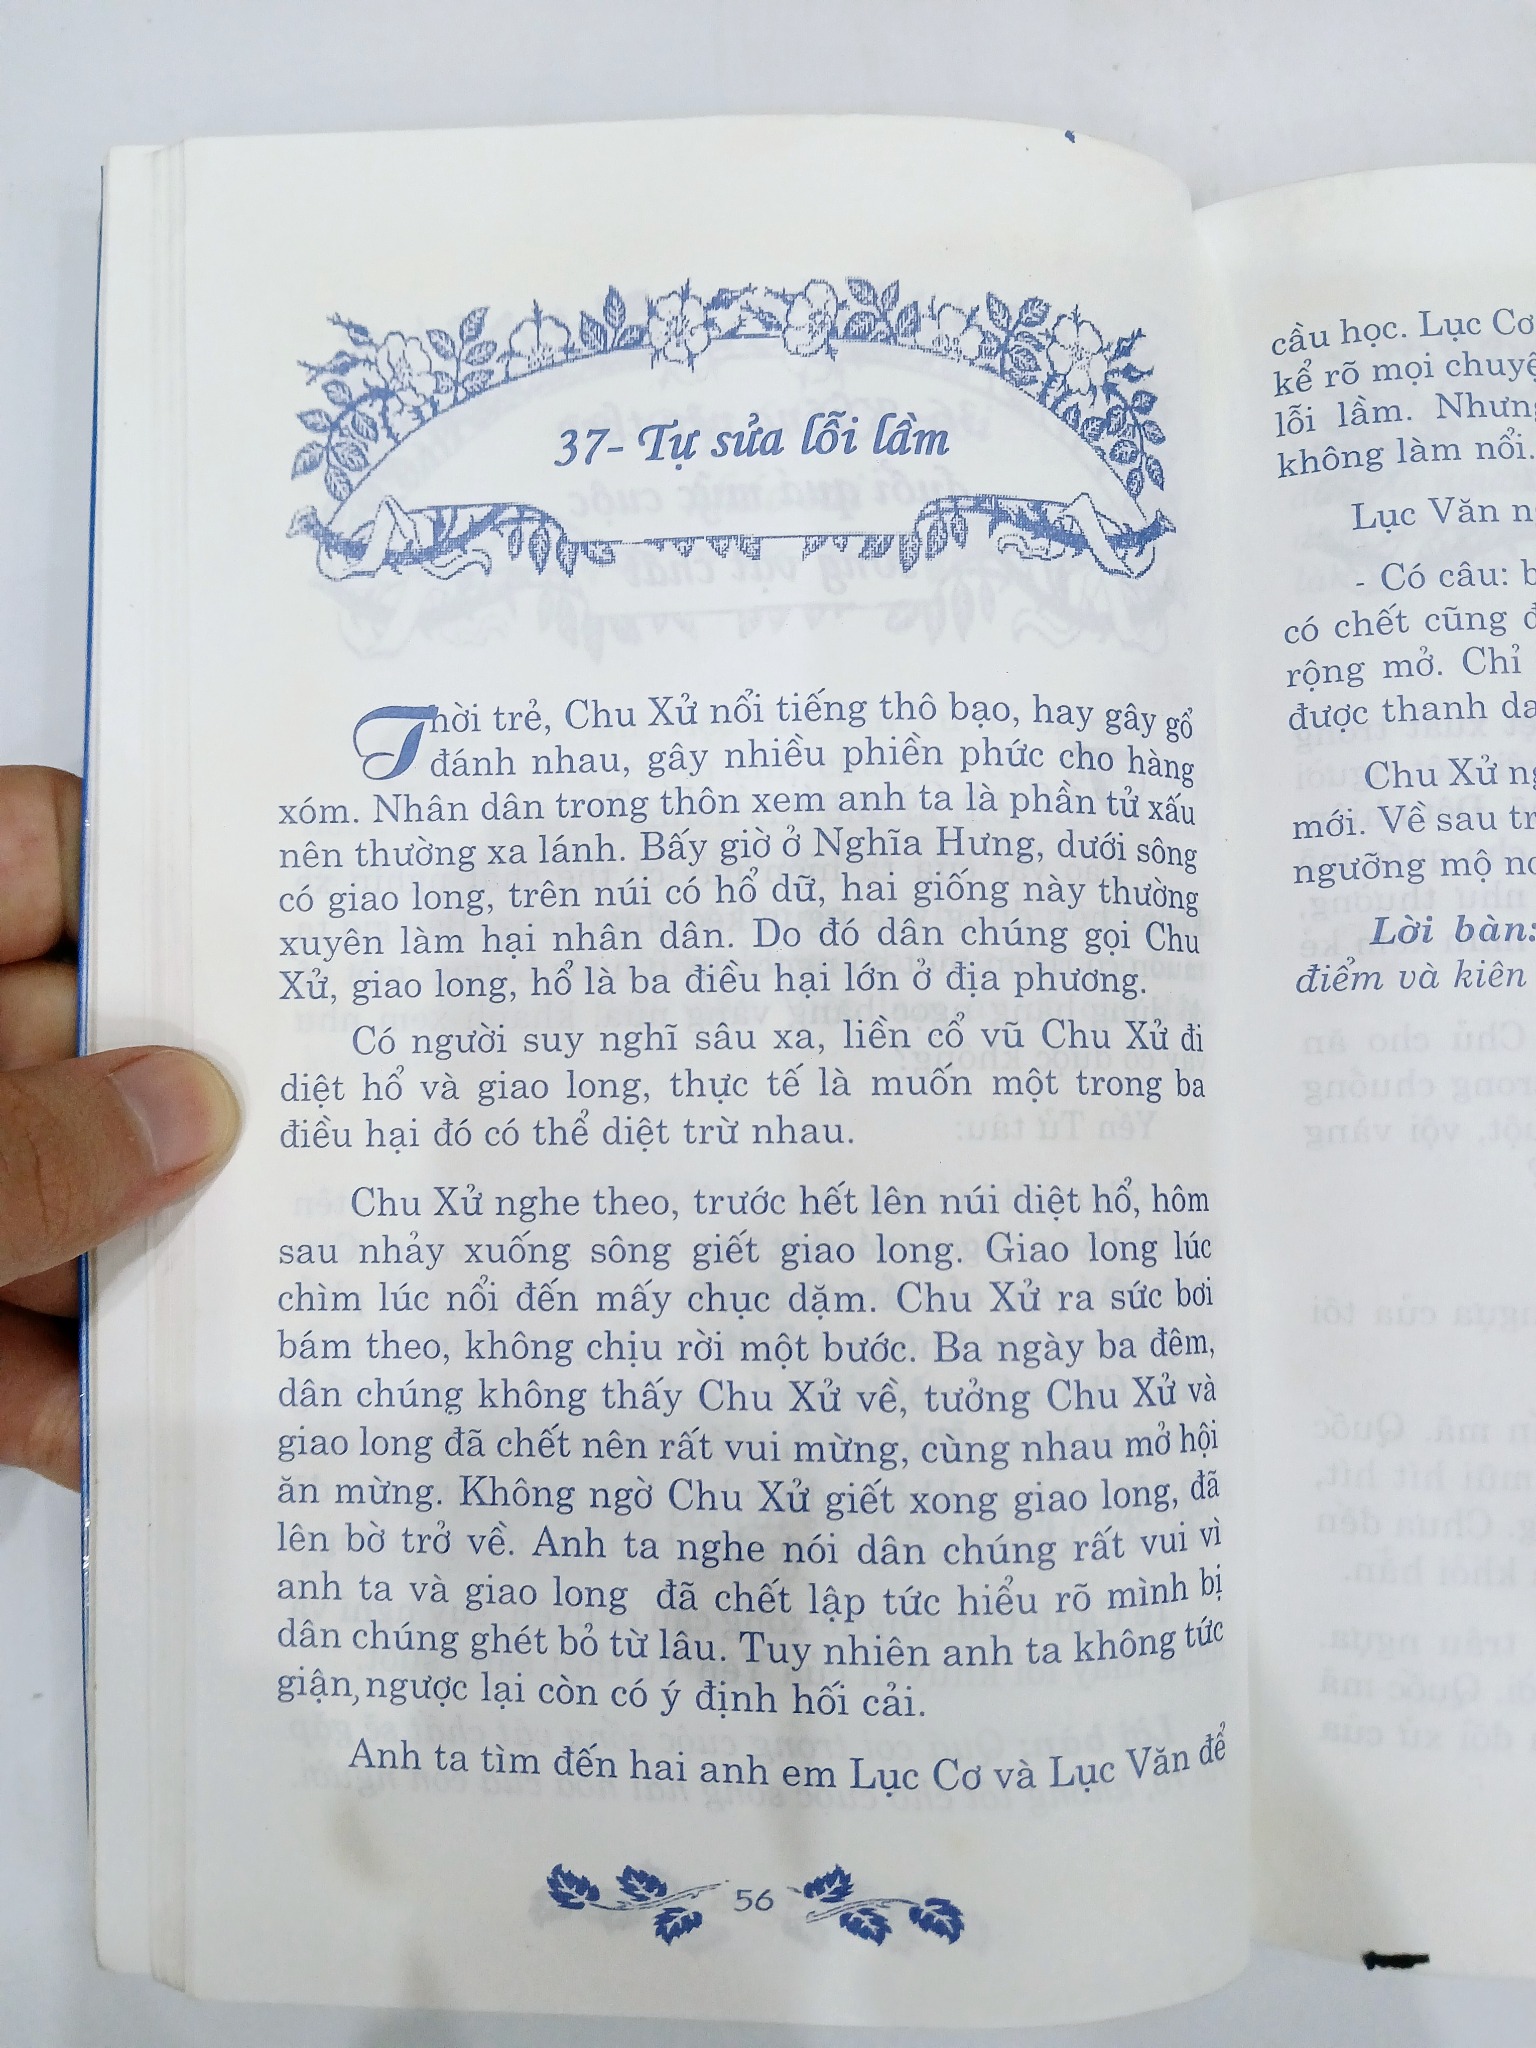 37- Tự sửa lỗi lầm
Thời trẻ, Chu Xử nổi tiếng thô bạo, hay gây gổ
đánh nhau, gây nhiều phiền phức cho hàng
xóm. Nhân dân trong thôn xem anh ta là phần tử xấu
nên thường xa lánh. Bấy giờ ở Nghĩa Hưng, dưới sông
có giao long, trên núi có hổ dữ, hai giống này thường
xuyên làm hại nhân dân. Do đó dân chúng gọi Chu
Xử, giao long, hổ là ba điều hại lớn ở địa phương.
Có người suy nghĩ sâu xa, liền cổ vũ Chu Xử đi
diệt hổ và giao long, thực tế là muốn một trong ba
điều hại đó có thể diệt trừ nhau.
Chu Xử nghe theo, trước hết lên núi diệt hổ, hôm
sau nhảy xuống sông giết giao long. Giao long lúc
chìm lúc nổi đến mấy chục dặm. Chu Xử ra sức bơi
bám theo, không chịu rời một bước. Ba ngày ba đêm,
dân chúng không thấy Chu Xử về, tưởng Chu Xử và
giao long đã chết nên rất vui mừng, cùng nhau mở hội
ăn mừng. Không ngờ Chu Xử giết xong giao long, đã
lên bờ trở về. Anh ta nghe nói dân chúng rất vui vì
anh ta và giao long đã chết lập tức hiểu rõ mình bị
dân chúng ghét bỏ từ lâu. Tuy nhiên anh ta không tức
giận, ngược lại còn có ý định hối cải.
Anh ta tìm đến hai anh em Lục Cơ và Lục Văn để
56
cầu học. Lục Cơ
kể rõ mọi
lỗi lầm.
không làm nổi.
Lục Văn
- Có câu:
có chết cũng
rộng mở. Chỉ
được thanh
Chu Xử
mới. Về sau
ngưỡng mộ
Lời bàn:
điểm và kiên